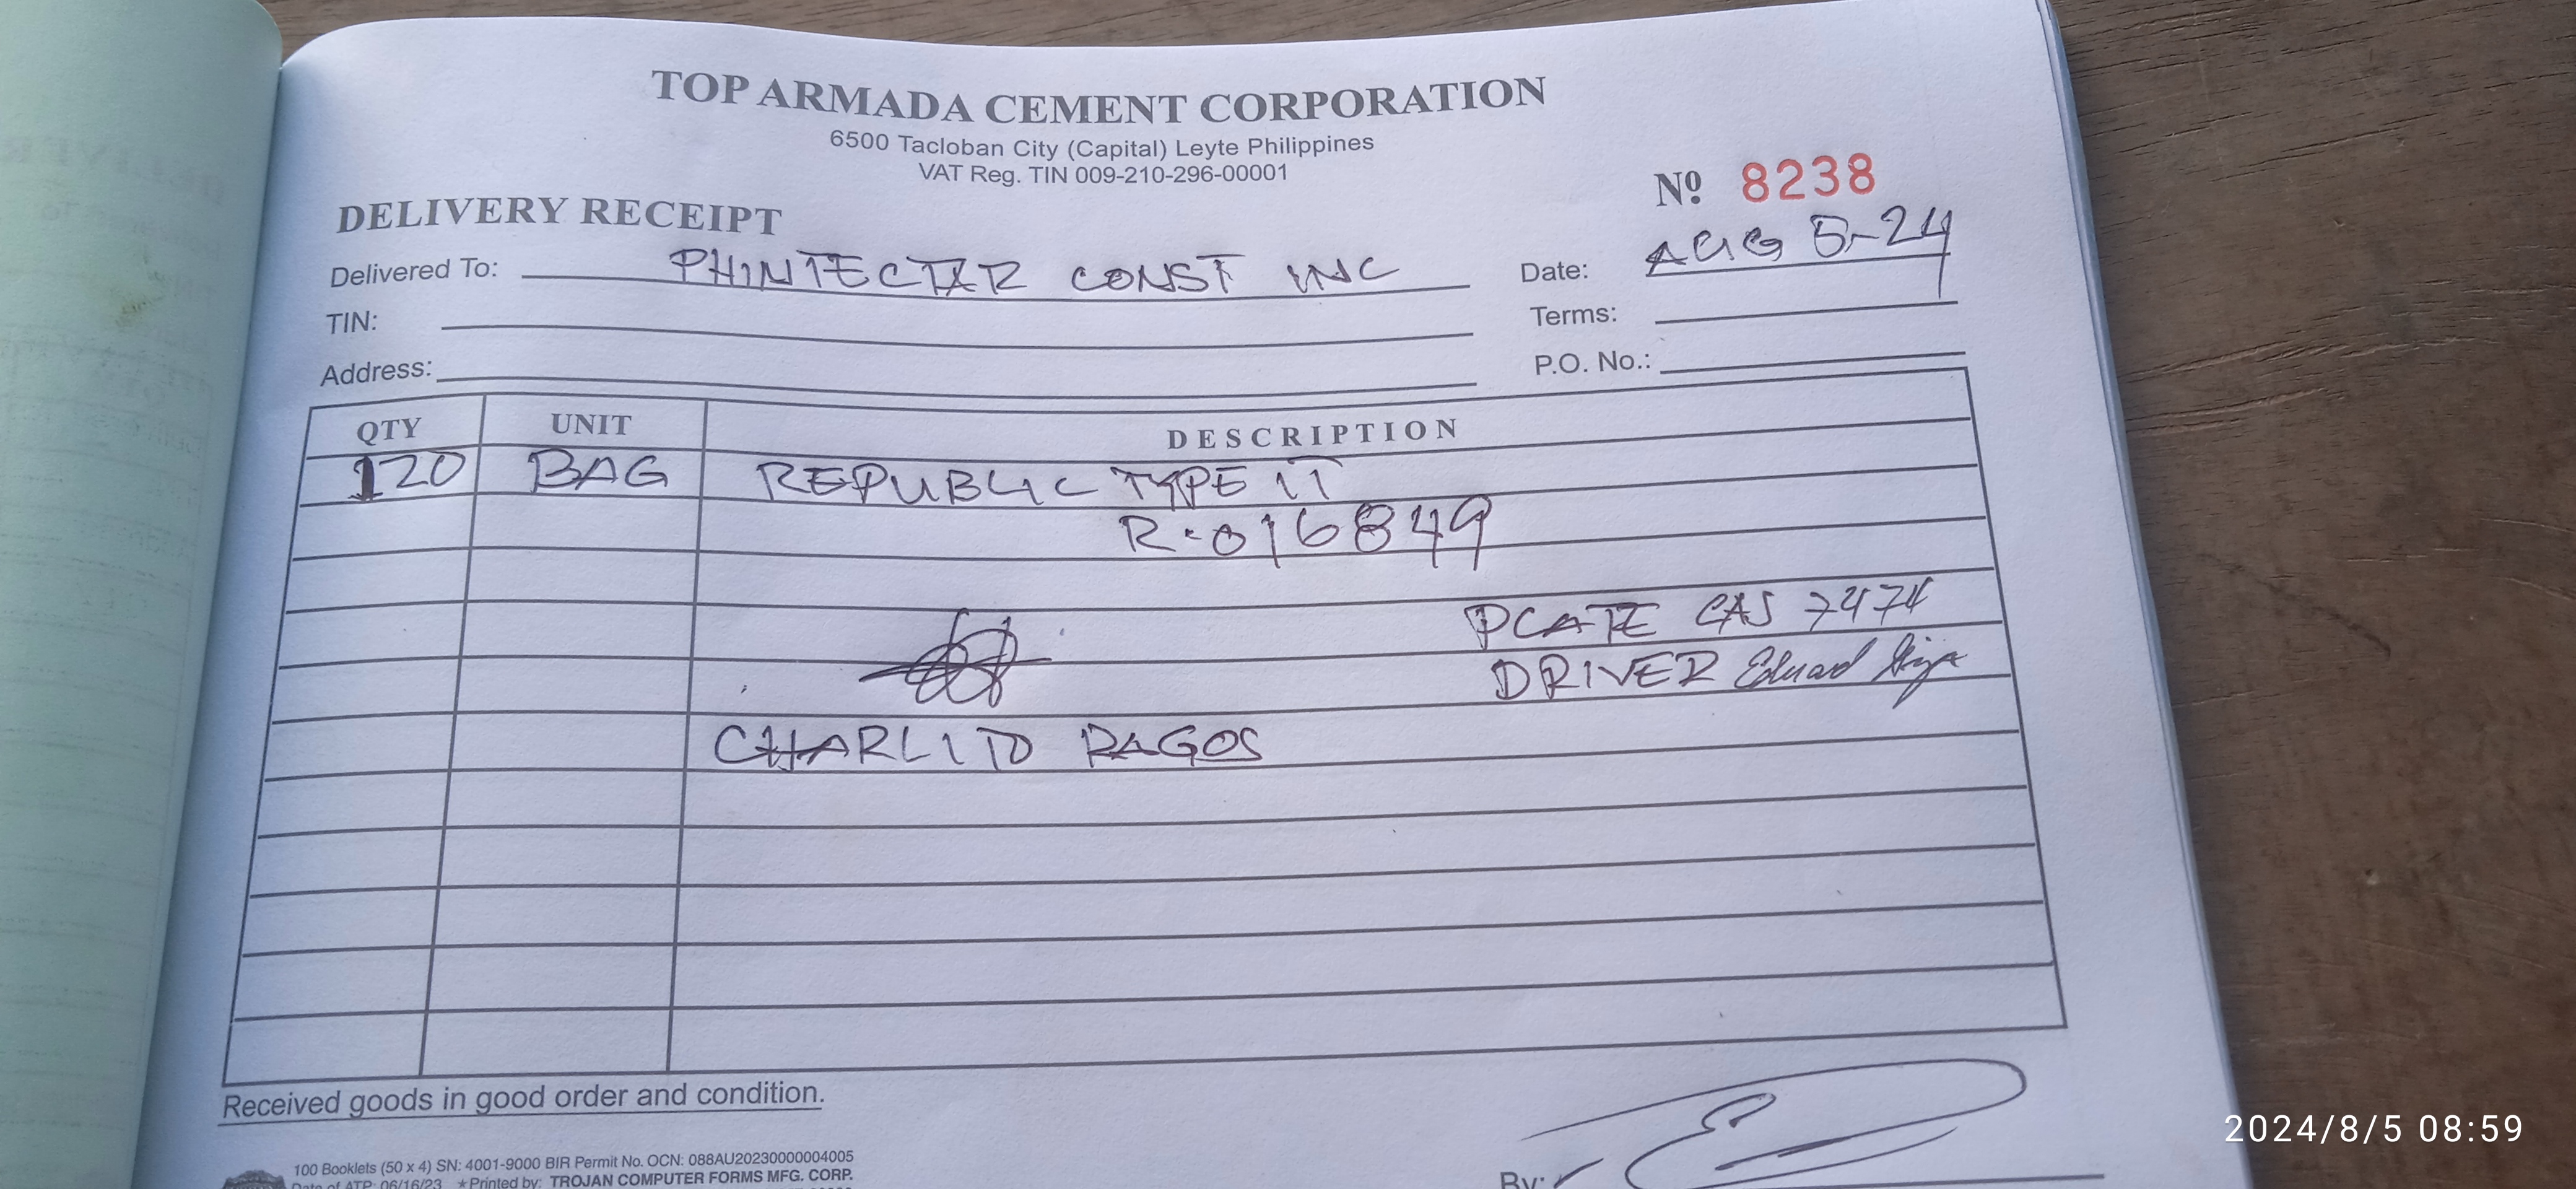 TOP ARMADA CEMENT CORPORATION
6500 Tacloban City (Capital) Leyte Philippines
VAT Reg. TIN 009-210-296-00001
Nº 8238
DELIVERY RECEIPT
Delivered To: PHINTECTAR CONST INC
Date: AUG 5-24
TIN:
Terms:
Address:
P.O. No.:
QTY UNIT DESCRIPTION
120 BAG REPUBLIC TYPE 1T
R-016849
PLATE CAS 7474
DRIVER Eduard
CHARLITO RAGOS
Received goods in good order and condition.
100 Booklets (50 x 4) SN: 4001-9000 BIR Permit No. OCN: 088AU20230000004005
Date of ATP: 06/16/23 *Printed by: TROJAN COMPUTER FORMS MFG. CORP.
By:
2024/8/5 08:59